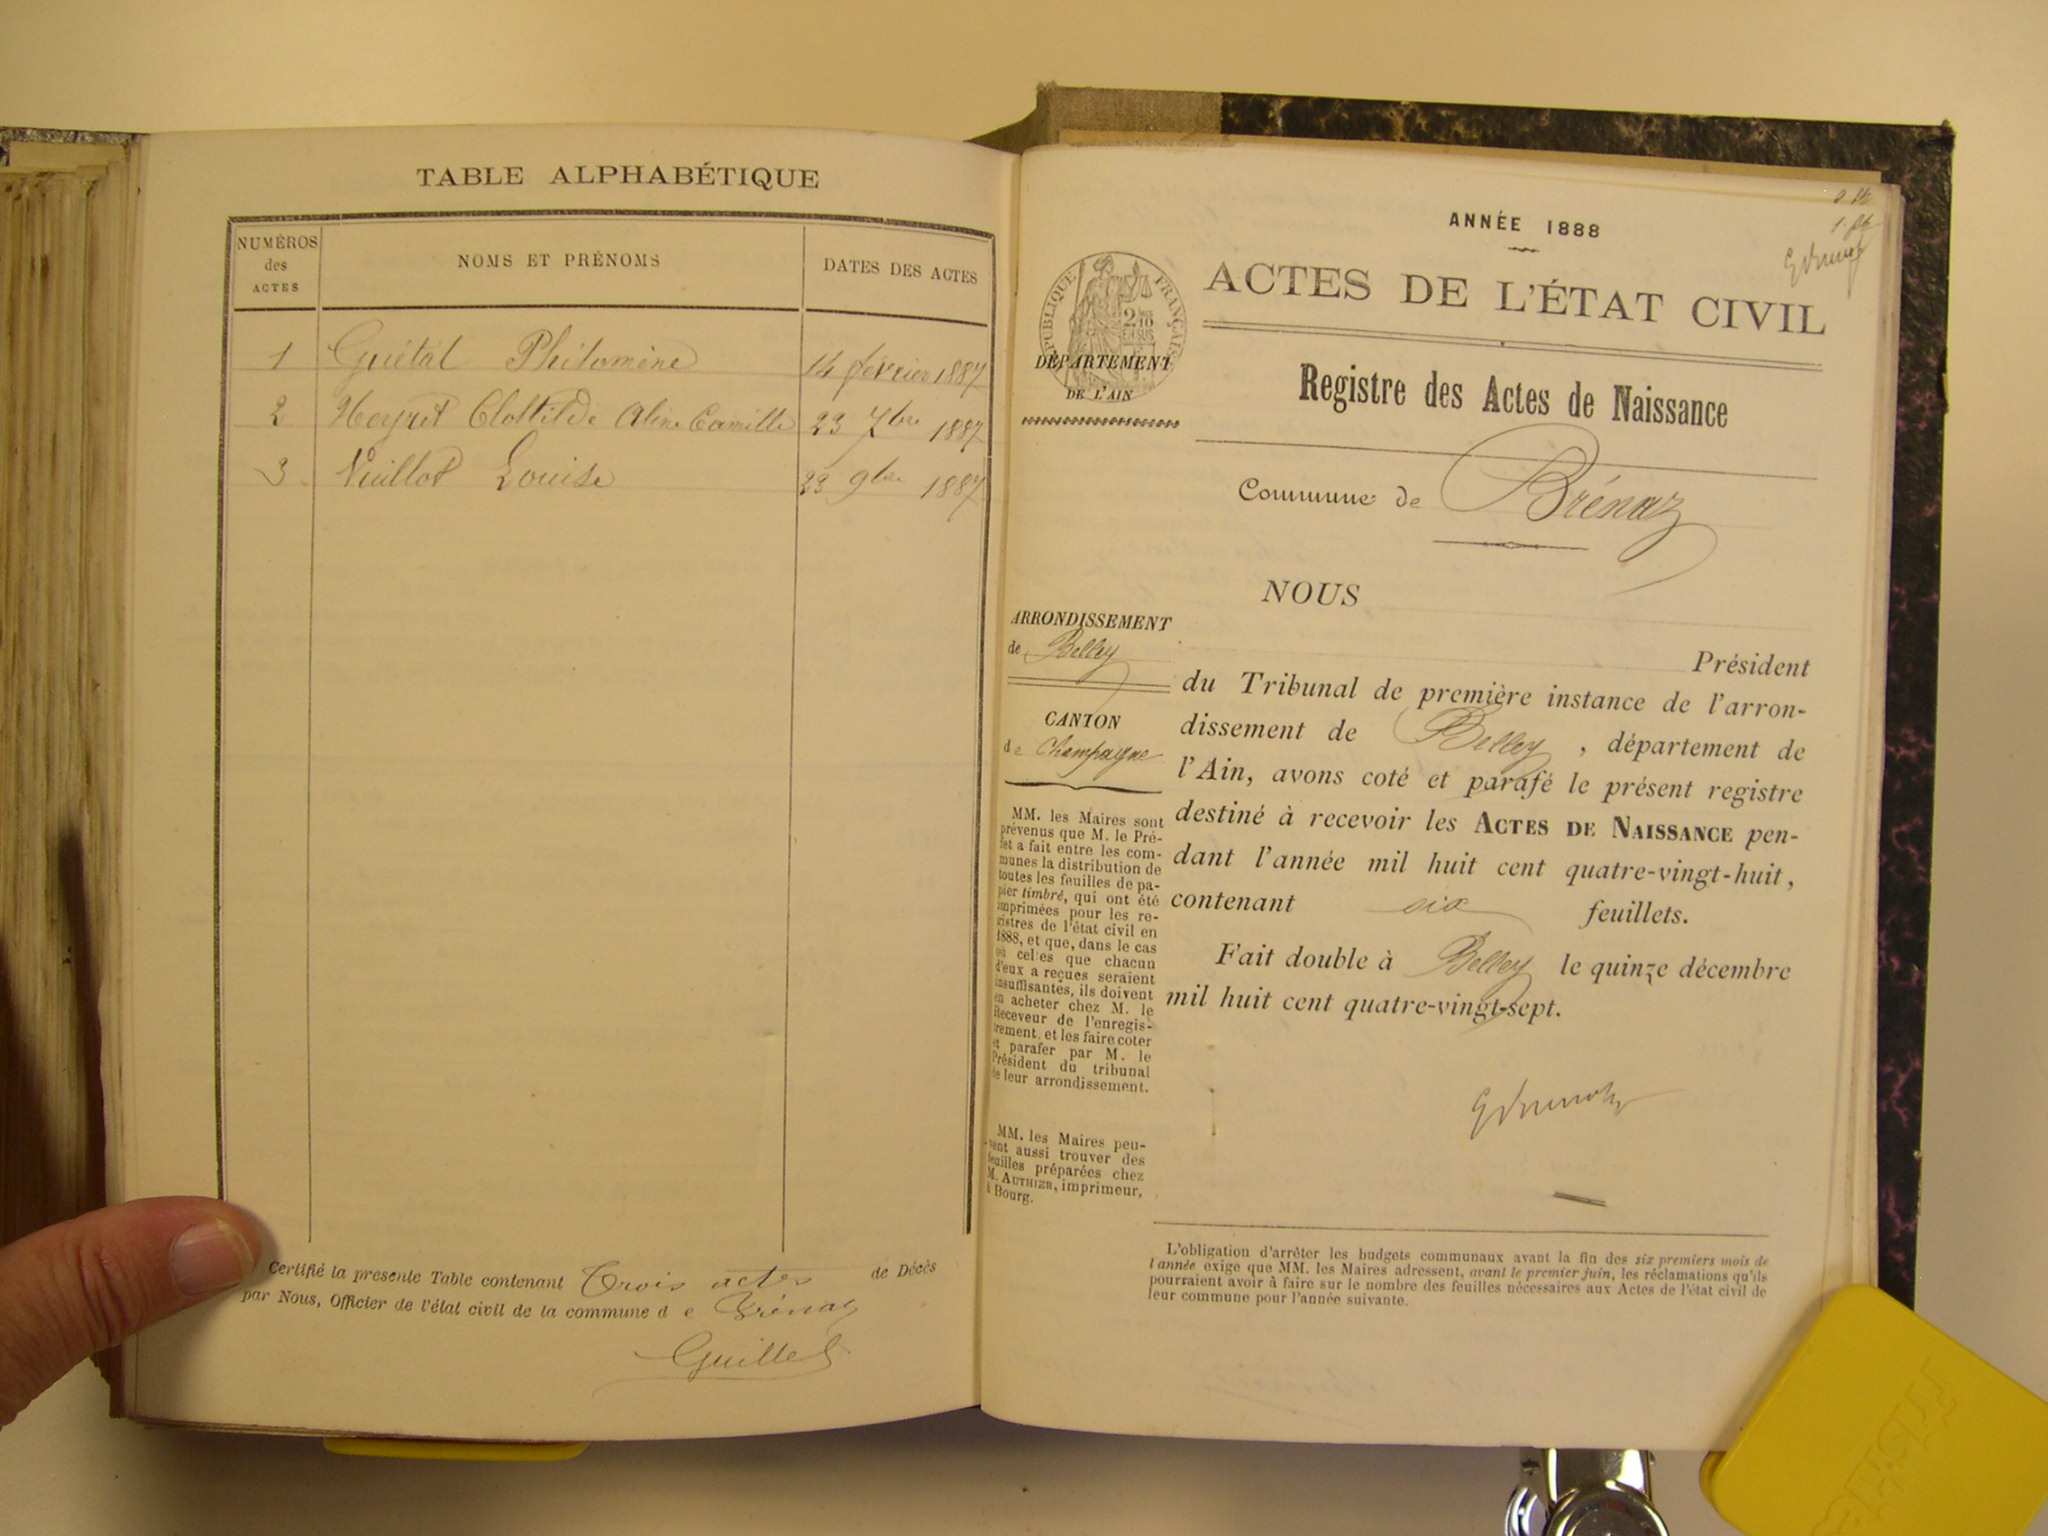 TABLE ALPHABÉTIQUE
NUMÉROS des ACTES
NOMS ET PRÉNOMS
DATES DES ACTES
1 Guétat Philomène 14 février 1887
2 Heyret Clottilde Aline Camille 23 7bre 1887
3 Vuillod Louise 23 9bre 1887
Certifié la présente Table contenant Trois actes de Décès
par Nous, Officier de l'état civil de la commune d e Brénaz
Guillet
ANNÉE 1888
ACTES DE L'ÉTAT CIVIL
RÉPUBLIQUE FRANÇAISE
DÉPARTEMENT
DE L'AIN
Registre des Actes de Naissance
Commune de Brénaz
NOUS
ARRONDISSEMENT
de Belley
CANTON
de Champagne
MM. les Maires sont
prévenus que M. le Pré-
fet a fait entre les com-
munes la distribution de
toutes les feuilles de pa-
pier timbré, qui ont été
imprimées pour les re-
gistres de l'état civil en
1888, et que, dans le cas
où celles que chacun
d'eux a reçues seraient
insuffisantes, ils doivent
en acheter chez M. le
Receveur de l'enregis-
trement, et les faire coter
et parafer par M. le
Président du tribunal
de leur arrondissement.
MM. les Maires peu-
vent aussi trouver des
feuilles préparées chez
M. AUTHIER, imprimeur,
à Bourg.
Président
du Tribunal de première instance de l'arron-
dissement de Belley, département de
l'Ain, avons coté et parafé le présent registre
destiné à recevoir les ACTES DE NAISSANCE pen-
dant l'année mil huit cent quatre-vingt-huit,
contenant six feuillets.
Fait double à Belley le quinze décembre
mil huit cent quatre-vingt-sept.
L'obligation d'arrêter les budgets communaux avant la fin des six premiers mois de
l'année exige que MM. les Maires adressent, avant le premier juin, les réclamations qu'ils
pourraient avoir à faire sur le nombre des feuilles nécessaires aux Actes de l'état civil de
leur commune pour l'année suivante.